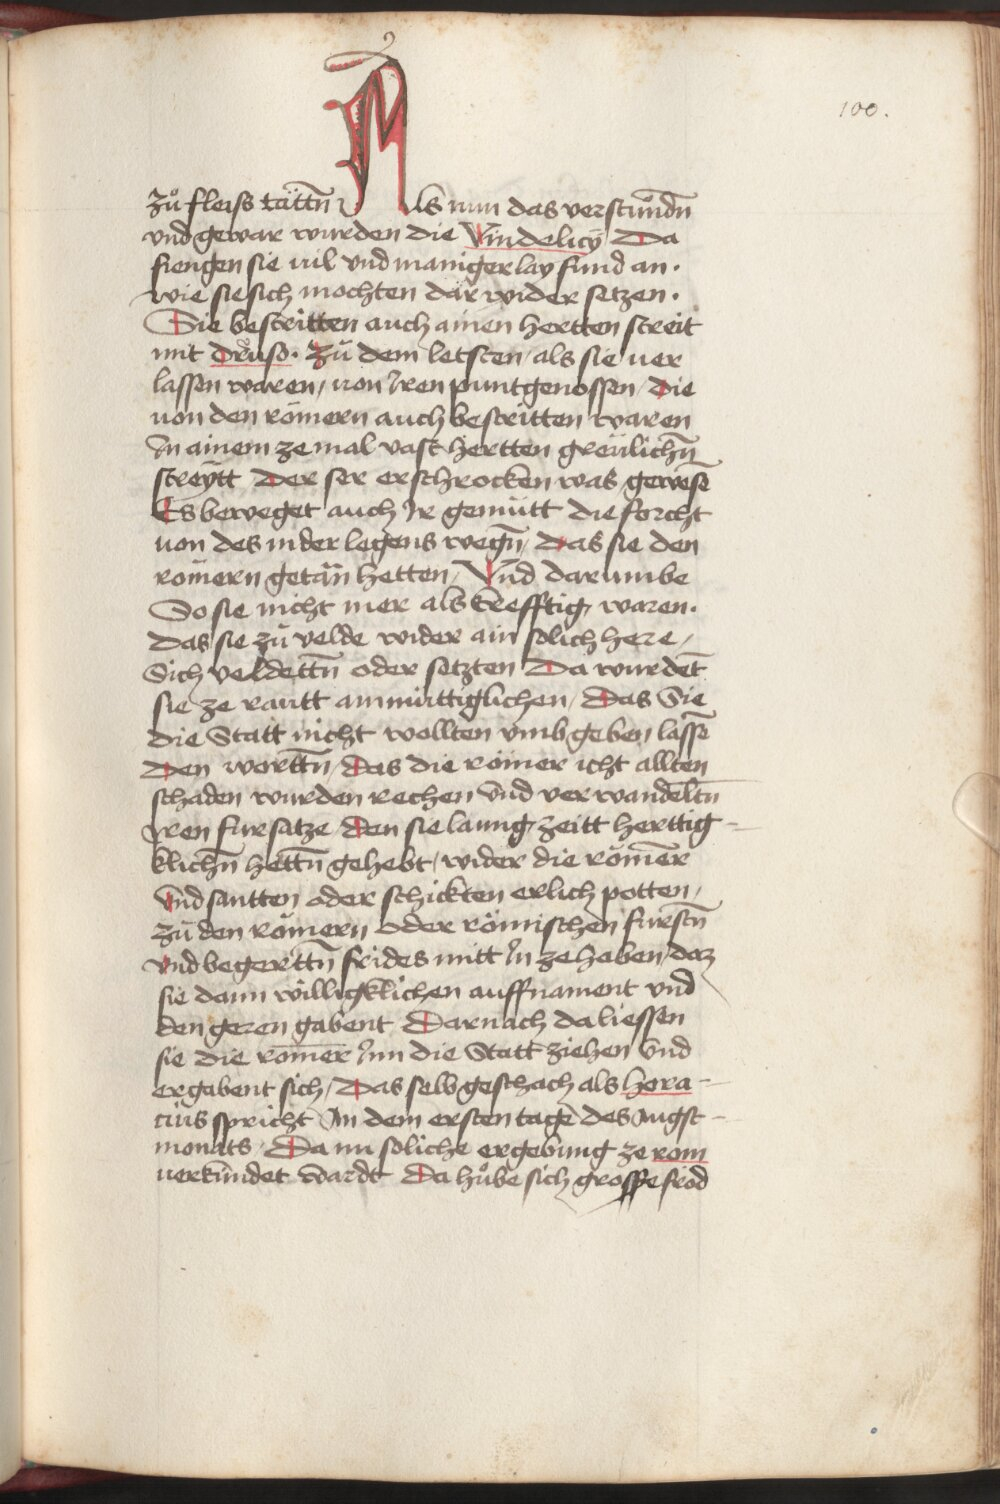 100.
zů fleiss tättn̄ Als nun das verstůndn̄
vnd gewar wurden die Vindelicÿ Da
fiengen sie uil vnd maniger lay fund an.
wie sie sich mochten dar wider setzen.
Sie bestritten auch ainen hertten streit
mit Druso. Zů dem letsten / als sie uer
lassen waren / uon Jren puntgenossen / Die
uon den römern auch bestritten waren
Jn ainem ze mal vast hertten greülichn̄
streÿtt Der ser erschrocken was gewesē
Es beweget auch Jr gemütt die forcht
uon des niderlegens wegn̄ / Das sie den
römern getän hetten / Vnd darumbe
So sie nicht mer als krefftig waren.
Das sie zů velde wider ain solich here /
Sich veldettn̄ oder satzten Da wurdet̄
sie ze rautt ainmüttiglichen / Das Sie
die Statt nicht wollten vmbgeben lassē
Den wortt̄n / Das die römer icht allten
schaden wurden rechen vnd verwandeltn̄
Jren fursatze / Den sie laung zeitt herttig-
klichn̄ hettn̄ gehebt / wider die römer
Vnd santten oder schickten erlich potten /
zů den römern oder römischen furstn̄
Vnd begerttn̄ frides mitt Jn ze haben / daz
sie dann williglklichen auffnament vnd
den geren gabent Darnach da liessen
sie die römer Jnn die Statt ziehen vnd
ergabent sich / Das selb geschach als hora-
cius spricht Jn dem ersten tage des Augst-
monats / Da nu soliche ergebung ze rom
uerkündet wardt Da hůbe sich grosse fröd